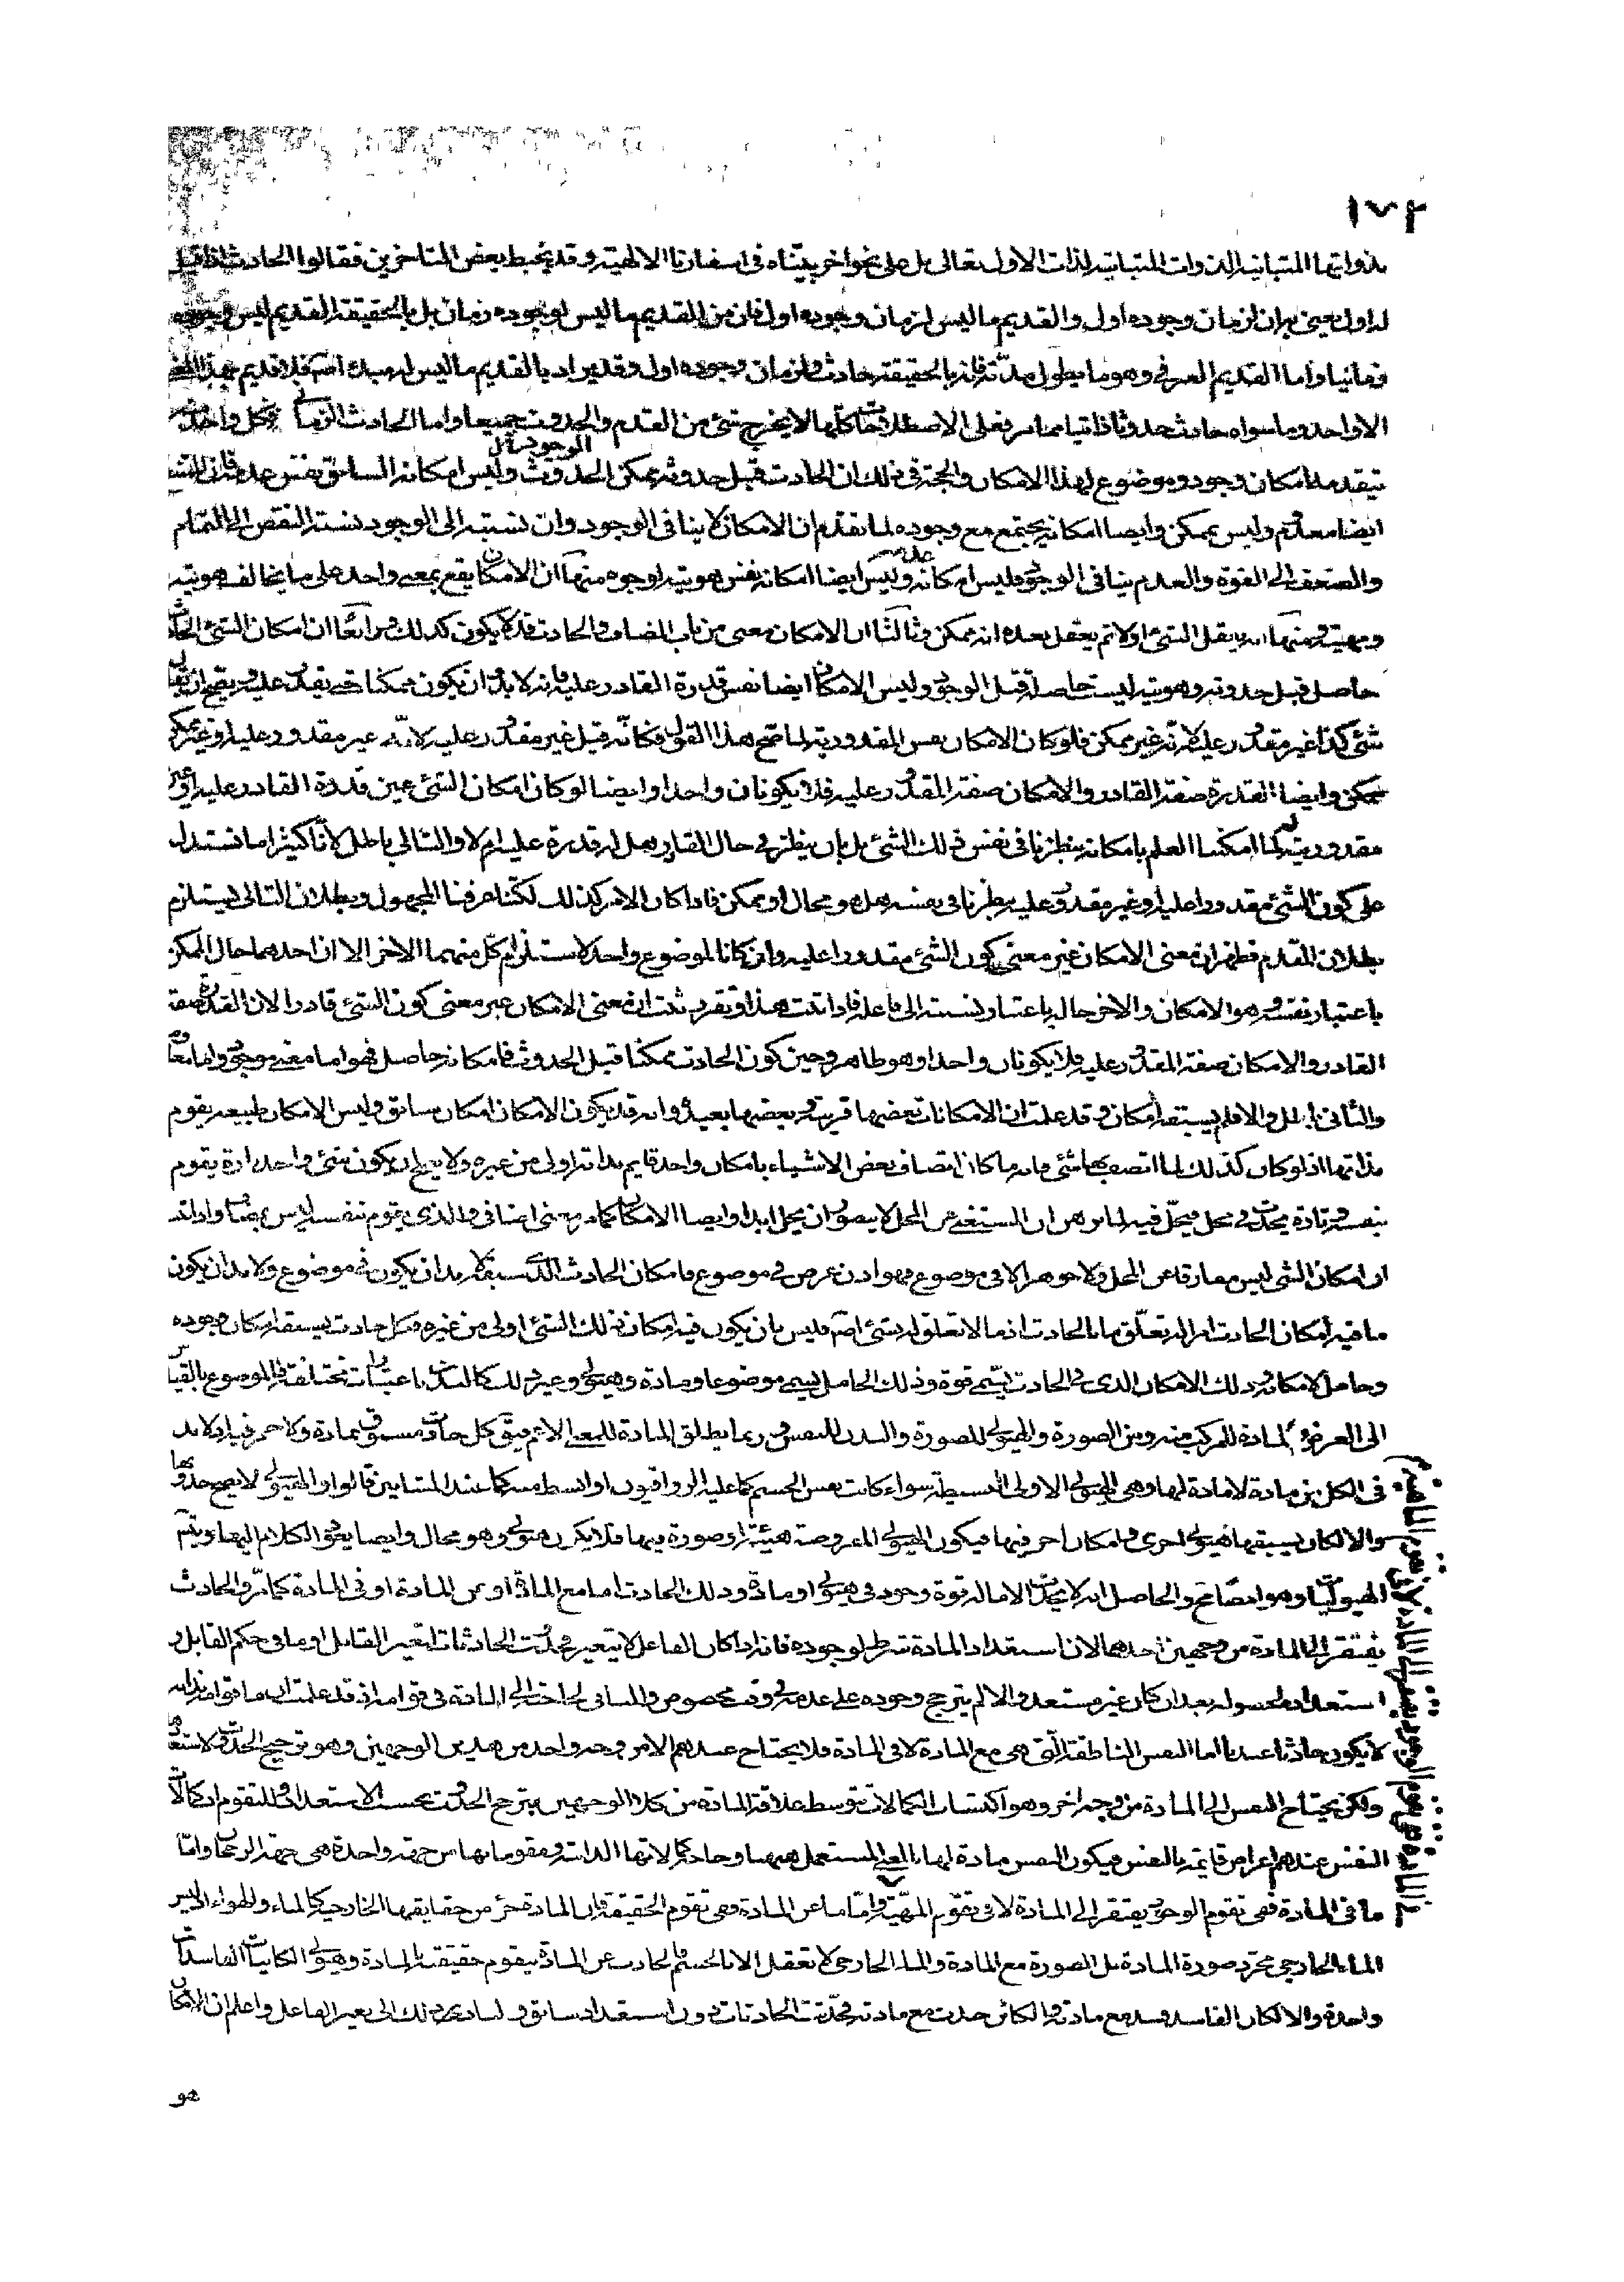 ١٧٢
بذواتها المتبانية الذوات المتباينة لذات الاول تعالى بل على نحو اخر بيناه في اسفارنا الالهية وقد يخبط بعض المتاخرين فقالوا الحادث اذا قيل
له اول يعني به ان لزمان وجوده اول والقديم ما ليس لزمان وجوده اول فان من القديم ما ليس لوجوده زمان بل بالحقيقة القديم ليس وجوده
زمانيا واما القديم العرفي وهو ما يطول مدته فانه بالحقيقة حادث ولزمان وجوده اول وقد يراد بالقديم ما ليس له مبدء اصلا فلا قديم بهذا
الا واحد وما سواه حادث حدوثا ذاتيا مما مر فعلى الاصطلاحات كلها لا يخرج شئ من القدم والحدوث جميعا واما الحادث الزماني فكل واحد
يتقدمه امكان وجود وموضوع لهذا الامكان والحجة في ذلك ان الحادث قبل حدوثه ممكن الحدوث وليس امكانه السابق نفس عدمه فان
ايضا معدوم وليس بممكن وايضا امكانه يجتمع مع وجوده لما تقدم ان الامكان لا ينافي الوجود وان نسبته الى الوجود نسبة النقص الى التمام
والضعف الى القوة والعدم ينافي الوجود فليس امكانه عدمه وليس ايضا امكانه نفس هويته لوجوه منها ان الامكان يقع بمعنى واحد على ما يخالف هويته
ومهيته ومنها انه يعقل الشئ اولا ثم يعقل بعده انه ممكن وثالثا ان الامكان معنى من باب المضاف والحادث قد لا يكون كذلك ورابعا ان امكان الشئ الحادث
حاصل قبل حدوثه وهويته ليست حاصلة قبل الوجود وليس الامكان ايضا نفس قدرة القادر عليه فانه لا بد ان يكون ممكنا حتى يقدر عليه ويصح ان يقال
شئ كذا غير مقدور عليه لانه غير ممكن فلو كان الامكان نفس المقدورية لما صح هذا القول فكانه قيل غير مقدور عليه لانه غير مقدور عليه او غير ممكن
ممكن وايضا القدرة صفة القادر والامكان صفة المقدور عليه فلا يكونان واحدا وايضا لو كان امكان الشئ عين قدرة القادر عليه او عين
مقدوريته لما امكننا العلم بامكانه بنظرنا في نفس ذلك الشئ بل بان ينظر في حال القادر هل له قدرة عليه ام لا والتالي باطل لانا كثيرا ما نستدل
على كون الشئ مقدورا عليه او غير مقدور عليه بنظرنا في نفسه هل هو محال او ممكن فاذا كان الامر كذلك لكنا عرفنا المجهول وبطلان التالي يستلزم
بطلان المقدم فظهر ان معنى الامكان غير معنى كون الشئ مقدورا عليه وان كانا لموضوع واحد لاستلزام كل منهما الاخر الا ان احدهما حال الممكن
باعتبار نفسه وهو الامكان والاخر حاله باعتبار نسبته الى فاعله فاذا ثبت هذا وتقرر ثبت ان معنى الامكان غير معنى كون الشئ قادرا لان القدرة صفة
القادر والامكان صفة المقدور عليه فلا يكونان واحدا وهو ظاهر وحين كون الحادث ممكنا قبل الحدوث فامكانه حاصل فهو اما معنى موجود واما معدوم
والثاني باطل والا فلم يسبقه امكان وقد علمت ان الامكانات بعضها قريبة وبعضها بعيدة وانه قد يكون الامكان امكان سابق وليس الامكان طبيعة يقوم
بذاتها اذ لو كان كذلك لما اتصف بها شئ فانه ما كان اتصاف بعض الاشياء بامكان واحد قايم بذاته اولى من غيره ولا يصح ان يكون شئ واحد تارة يقوم
بنفسه وتارة يحدث في محل فيحل فيه لما برهن ان المستغني عن المحل لا يتصور ان يحل ابدا وايضا الامكان كما مر معنى اضافي والذي يقوم بنفسه ليس بمضاف واذا ثبت
ان امكان الشئ ليس مفارقا عن المحل ولا جوهرا لا في موضوع فهو اذن عرض في موضوع فامكان الحادث الذي سبقه لا بد ان يكون في موضوع ولا بد ان يكون
ما فيه امكان الحادث امرا له تعلق ما بالحادث اذ ما لا تعلق له بشئ اصلا فليس بان يكون فيه امكان ذلك الشئ اولى من غيره فكل حادث يسبقه امكان وجوده
وحامل لامكانه وذلك الامكان الذي في الحادث يسمى قوة وذلك الحامل يسمى موضوعا ومادة وهيولى وغير ذلك كالبدن باعتبارات مختلفة فالموضوع بالقياس
الى العرض والمادة للمركب منه ومن الصورة والهيولى للصورة والبدن للنفس وربما يطلق المادة للمعنى الاعم فيقال كل حادث مسبوق بمادة ولا حرج فيه اذ لا بد
في الكل من مادة لا مادة لها وهي الهيولى الاولى البسيطة سواء كانت نفس الجسم كما عليه الرواقيون او ابسط منه كما عند المشايين قالوا والهيولى لا يصح حدوثها
والا لكان يسبقها هيولى اخرى وامكان اخر فيها فيكون الهيولى المفروضة هيئة او صورة فيها فلا يكون هيولى وهو محال وايضا يعود الكلام اليها
الهيوليات وهو ايضا والحاصل انه لا يحدث الا ما له قوة وجود في هيولى او مادة وذلك الحادث اما مع المادة او عن المادة او في المادة كما مر والحادث
يفتقر الى المادة من وجهين احدهما لان استعداد المادة شرط لوجوده فانه اذا كان الفاعل لا يتغير فحدوث الحادثات لتغير القابل او ما في حكم القابل و
استعداده لحصوله بعد ان كان غير مستعد والا لم يترجح وجوده على عدمه في وقت مخصوص والثاني لحاجته الى المادة في قوامه اذ قد علمت ان ما قوامه بذاته
لا يكون حادثا عندنا اما النفس الناطقة التي هي مع المادة لا في المادة فلا يحتاج عندهم الا من وجه واحد من هذين الوجهين وهو ترجيح الحدوث
ولكن يحتاج النفس الى المادة من وجه اخر وهو اكتساب الكمالات بتوسط علاقة المادة من كلا الوجهين يترجح الحدوث بحسب الاستعداد وللتقوم اذ كمالات
النفس عندهم اعراض قايمة بالنفس فيكون النفس مادة لها بالمعنى المستعمل هيهنا وحاجة كمالاتها الذاتية ومقوماتها من جهة واحدة هي جهة الرجحان واما
ما في المادة فهي تقوم الوجود يفتقر الى المادة لا في تقوم المهية واما ما عن المادة وهي تقوم الحقيقة فان المادة جزء من حقايقها الخارجية كالماء والهواء اذ ليس
الماء الخارجي مجرد صورة المادة بل الصورة مع المادة والماء الخارجي لا تعقل الا بالجسم فالحادث عن المادة يتقوم حقيقته بالمادة وهيولى الكاينات الفاسدات
واحدة والا لكان الفاسد فسد مع مادته والكائن حدث مع مادته فحدثت الحادثات دون استعداد سابق ولتادى ذلك الى تغير الفاعل واعلم ان الامكان
هو